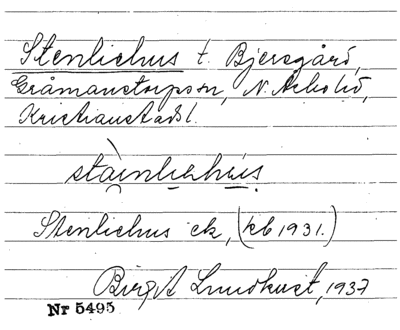 Stenliehus t. Bjersgård,
Gråmanstorpssn, N. Åsbohd,
Kristianstads l.
stainliehús
Stenliehus ek, (kb 1931.)
Birgit Lundkvist, 1937
Nr 5495